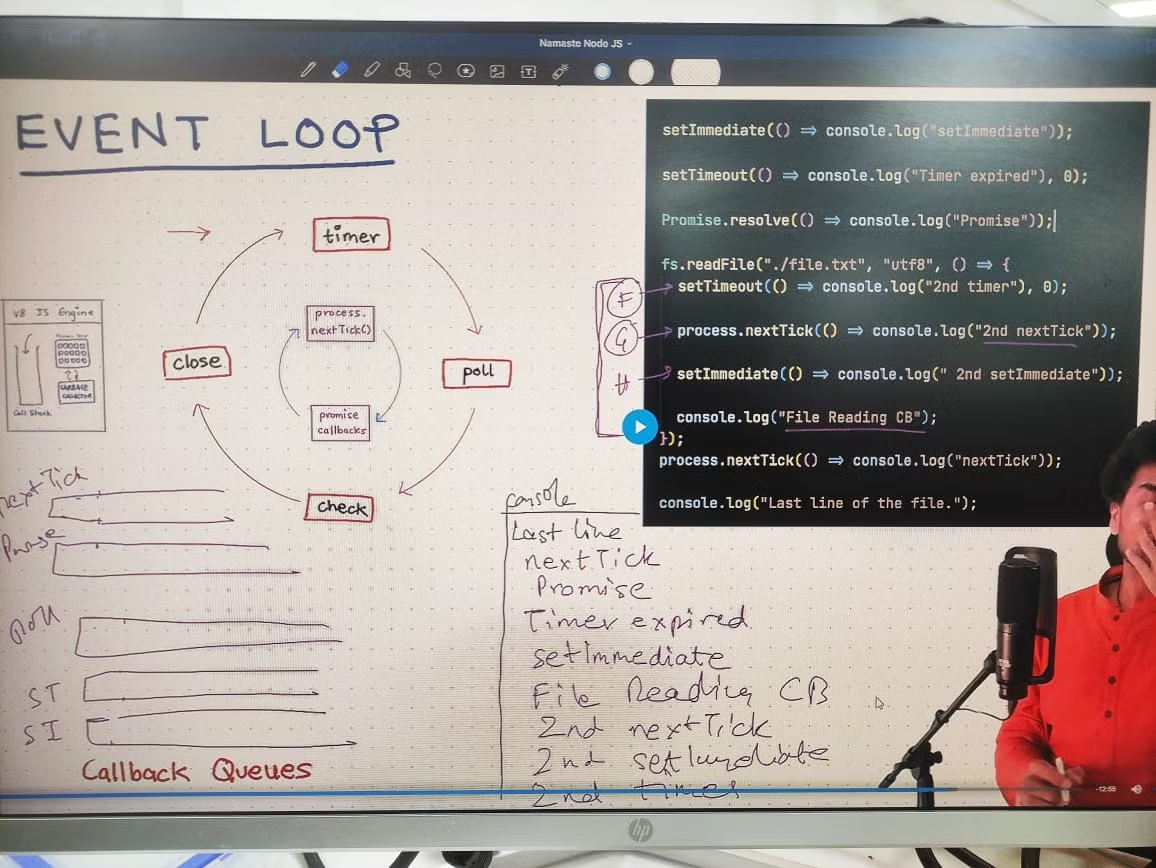 Namaste Node JS
EVENT LOOP
timer
process.
nextTick()
promise
callbacks
close
poll
check
V8 JS Engine
Call Stack
GARBAGE
COLLECTOR
nextTick
Poll
ST
SI
Callback Queues
F
G
H
setImmediate(() => console.log("setImmediate"));
setTimeout(() => console.log("Timer expired"), 0);
Promise.resolve(() => console.log("Promise"));
fs.readFile("./file.txt", "utf8", () => {
setTimeout(() => console.log("2nd timer"), 0);
process.nextTick(() => console.log("2nd nextTick"));
setImmediate(() => console.log(" 2nd setImmediate"));
console.log("File Reading CB");
});
process.nextTick(() => console.log("nextTick"));
console.log("Last line of the file.");
console
Last line
nextTick
Promise
Timer expired
setImmediate
File Reading CB
2nd nextTick
2nd
2nd
-12:55
hp